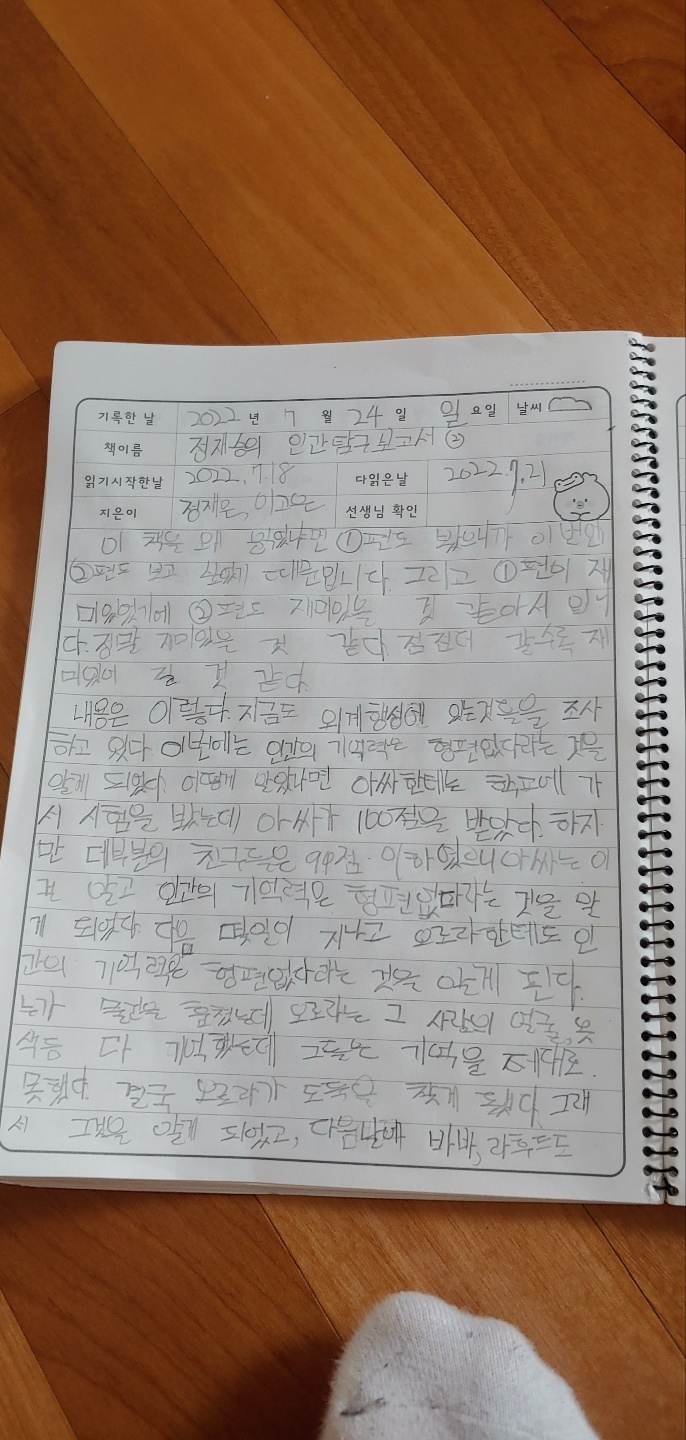 기록한 날 2022 년 7 월 24 일 일 요일 날씨
책이름 정재승의 인간탐구보고서 ②
읽기시작한날 2022.7.18 다읽은날 2022.7.21
지은이 정재은, 이고은 선생님 확인
이 책을 왜 읽었냐면 ①편도 봤으니가 이번엔
②편도 보고 싶었기 때문입니다. 그리고 ①편이 재
미있었기에 ②편도 재미있을 것 같아서 입니
다. 정말 재미있을 것 같다. 점전더 갈수록 재
미있어 질 것 같다.
내용은 이렇다. 지금도 외계행성엔 있는것들을 조사
하고 있다. 이번에는 인간의 기억력은 형편없다라는 것을
알게 되었다. 어떻게 알았냐면 아싸한테는 학교에 가
서 시험을 봤는데 아싸가 100점을 받았다. 하지
만 대부분의 친구들은 99점 이하였으니 아싸는 이
알고 인간의 기억력은 형편없다라는 것을 알
게 되었다. 다음 몇일이 지나고 오로라한테도 인
간의 기억력은 형편없다라는 것을 알게 된다.
누가 물건을 훔쳤는데 오로라는 그 사람의 얼굴, 옷
색등 다 기억했는데 그들은 기억을 제대로
못했다. 결국 오로라가 도둑을 찾게 됐다. 그래
서 그것을 알게 되었고, 다음날에 바바, 라후드도